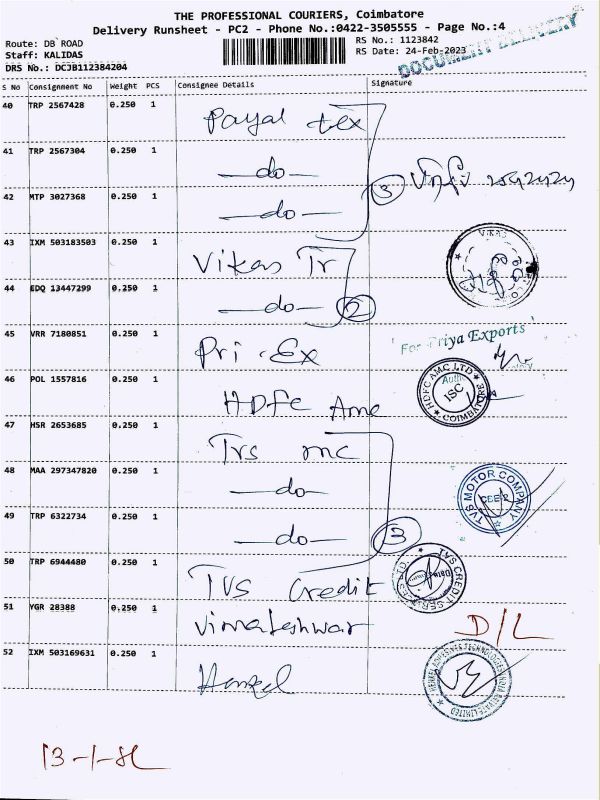 THE PROFESSIONAL COURIERS, Coimbatore
Delivery Runsheet - PC2 - Phone No.:0422-3505555 - Page No.:4
Route: DB ROAD
Staff: KALIDAS
DRS No.: DCJB112384204
RS No.: 1123842
RS Date: 24-Feb-2023
DOCUMENT DELIVERY
S No Consignment No Weight PCS Consignee Details Signature
40 TRP 2567428 0.250 1 Payal tex
41 TRP 2567304 0.250 1 —do—
42 MTP 3027368 0.250 1 —do— 3
43 IXM 503183503 0.250 1 Vikas Tr
VIKAS
44 EDQ 13447299 0.250 1 —do— 2
45 VRR 7180851 0.250 1 Pri . Ex
For Priya Exports
46 POL 1557816 0.250 1 HDFC Amc
HDFC AMC LTD ISC COIMBATORE
47 HSR 2653685 0.250 1 Tvs mc
48 MAA 297347820 0.250 1 —do—
TVS MOTOR COMPANY
49 TRP 6322734 0.250 1 —do— 3
50 TRP 6944480 0.250 1 TVS Credit
TVS CREDIT SERVICES LTD.
51 YGR 28388 0.250 1 Vimaleshwar D/L
52 IXM 503169631 0.250 1 Henkel
HENKEL ADHESIVES TECHNOLOGIES INDIA PRIVATE LIMITED